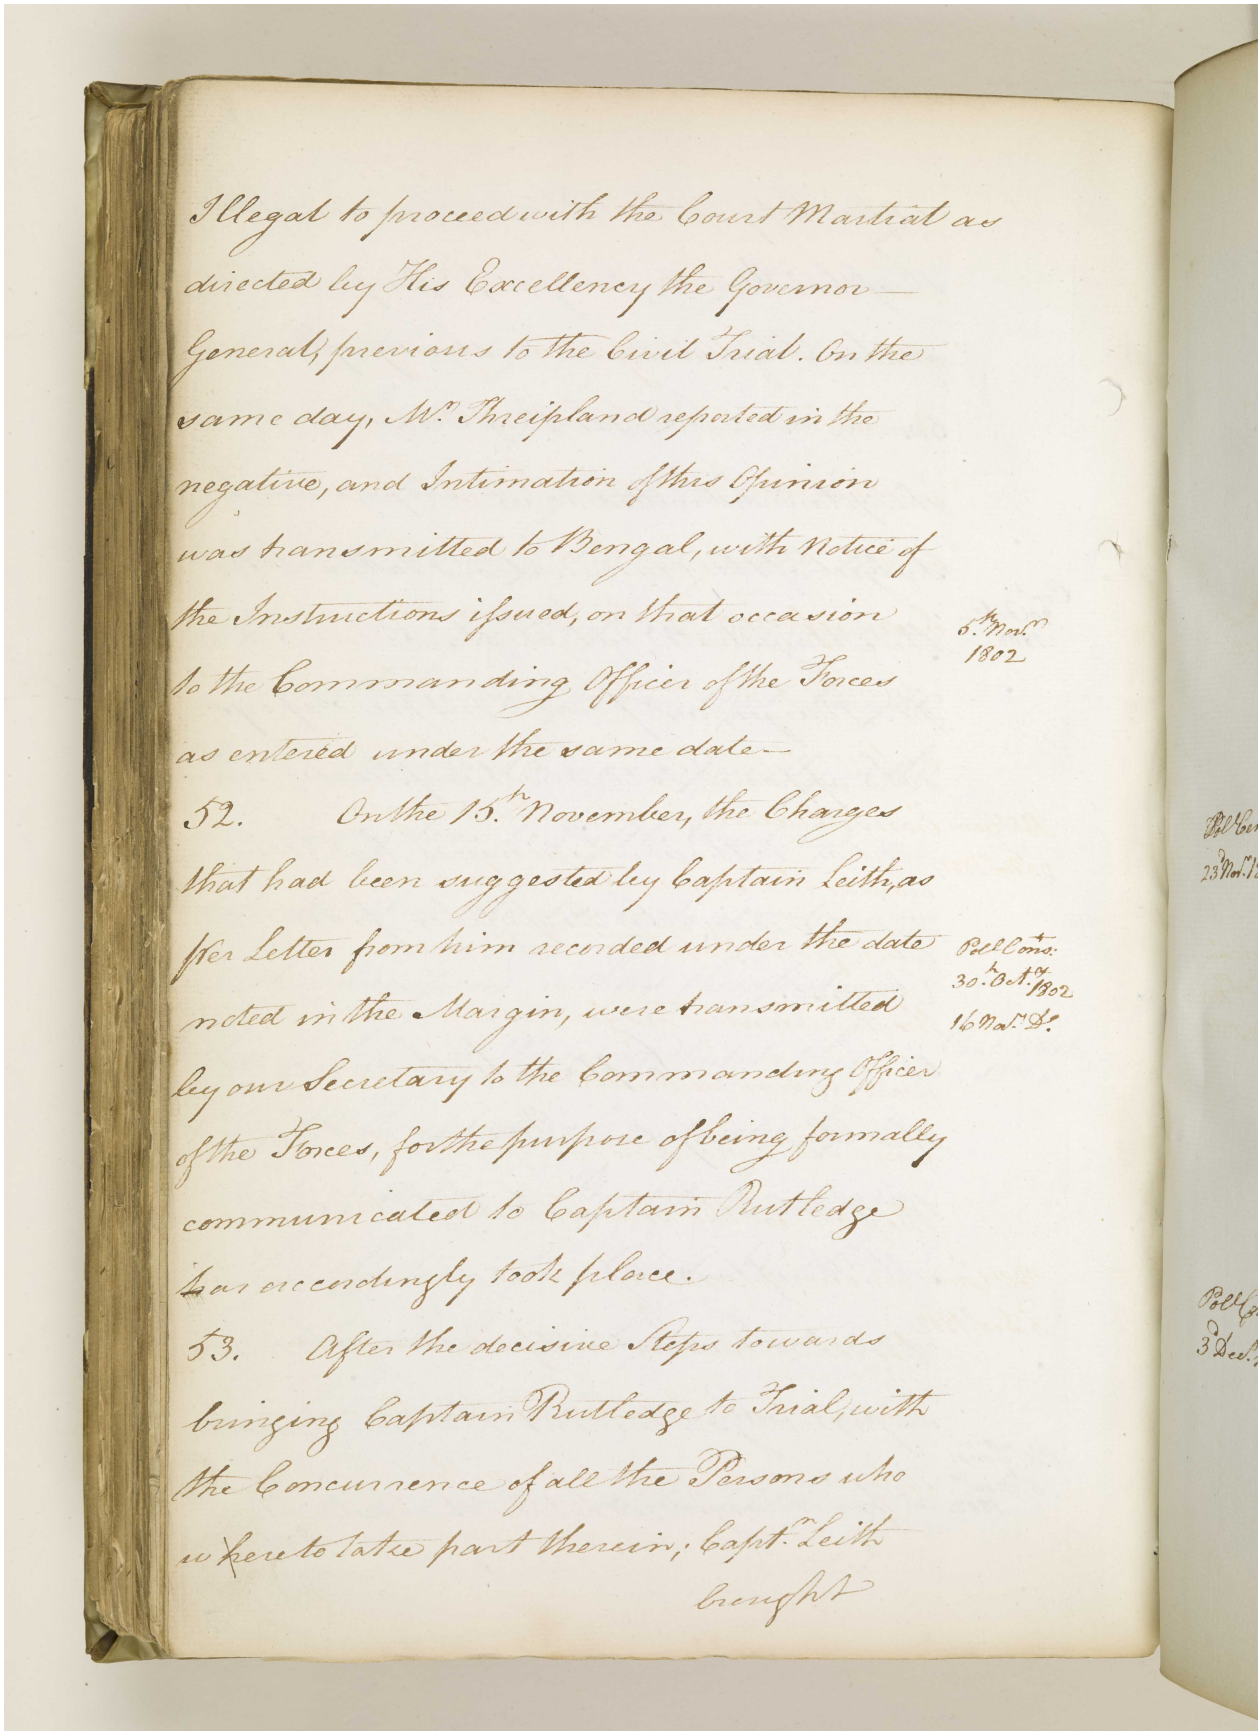 Illegal to proceed with the Court Martial as
directed by His Excellency the Governor—
General, previous to the Civil Trial. On the
same day, Mr. Threipland reported in the
negative, and Intimation of this Opinion
was transmitted to Bengal, with Notice of
the Instructions issued, on that occasion
5.th Nov.r
1802
to the Commanding Officer of the Forces
as entered under the same date—
52. On the 15.th November, the Charges
that had been suggested by Captain Leith, as
per Letter from him recorded under the date
Poll Cons:
30.th Oct.r 1802
16 Nov.r Do.
noted in the Margin, were transmitted
by our Secretary to the Commanding Officer
of the Forces, for the purpose of being formally
communicated to Captain Rutledge
has accordingly took place.
53. After the decisive Steps towards
bringing Captain Rutledge to Trial, with
the Concurrence of all the Persons who
where to take part therein; Capt.n Leith
brought
23d Nov.
3d Dec.